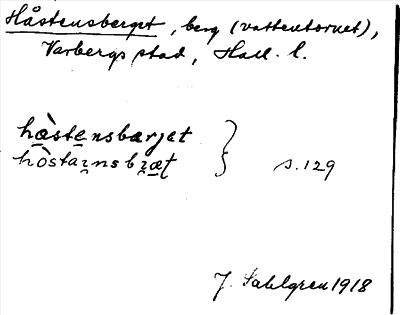 Håstensberget, berg (vattentornet),
Varbergs stad, Hall. l.
hàstensbærjet
hòstaɪnsbɪæt } s. 129
J. Sahlgren 1918